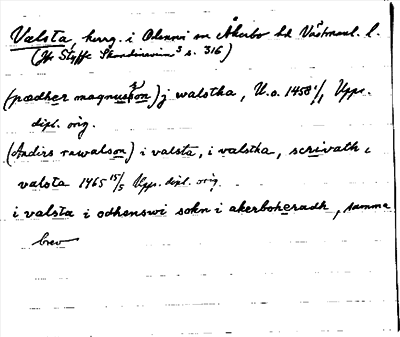 Valsta, herrg. i Odensvi sn Åkerbo hd Västmanl. l.
(Jfr Styffe Skandinavien³ s. 316)
(pædher magnusson) j walstka, U.o. 1458 1/1, Upps.
dipl. orig.
(Andirs rawalson) i valsta, i valstka, scrivath i
valsta 1465 15/5 Upps. dipl. orig.
i valsta i odhenswi sokn i akerbohæradh, samma
brev